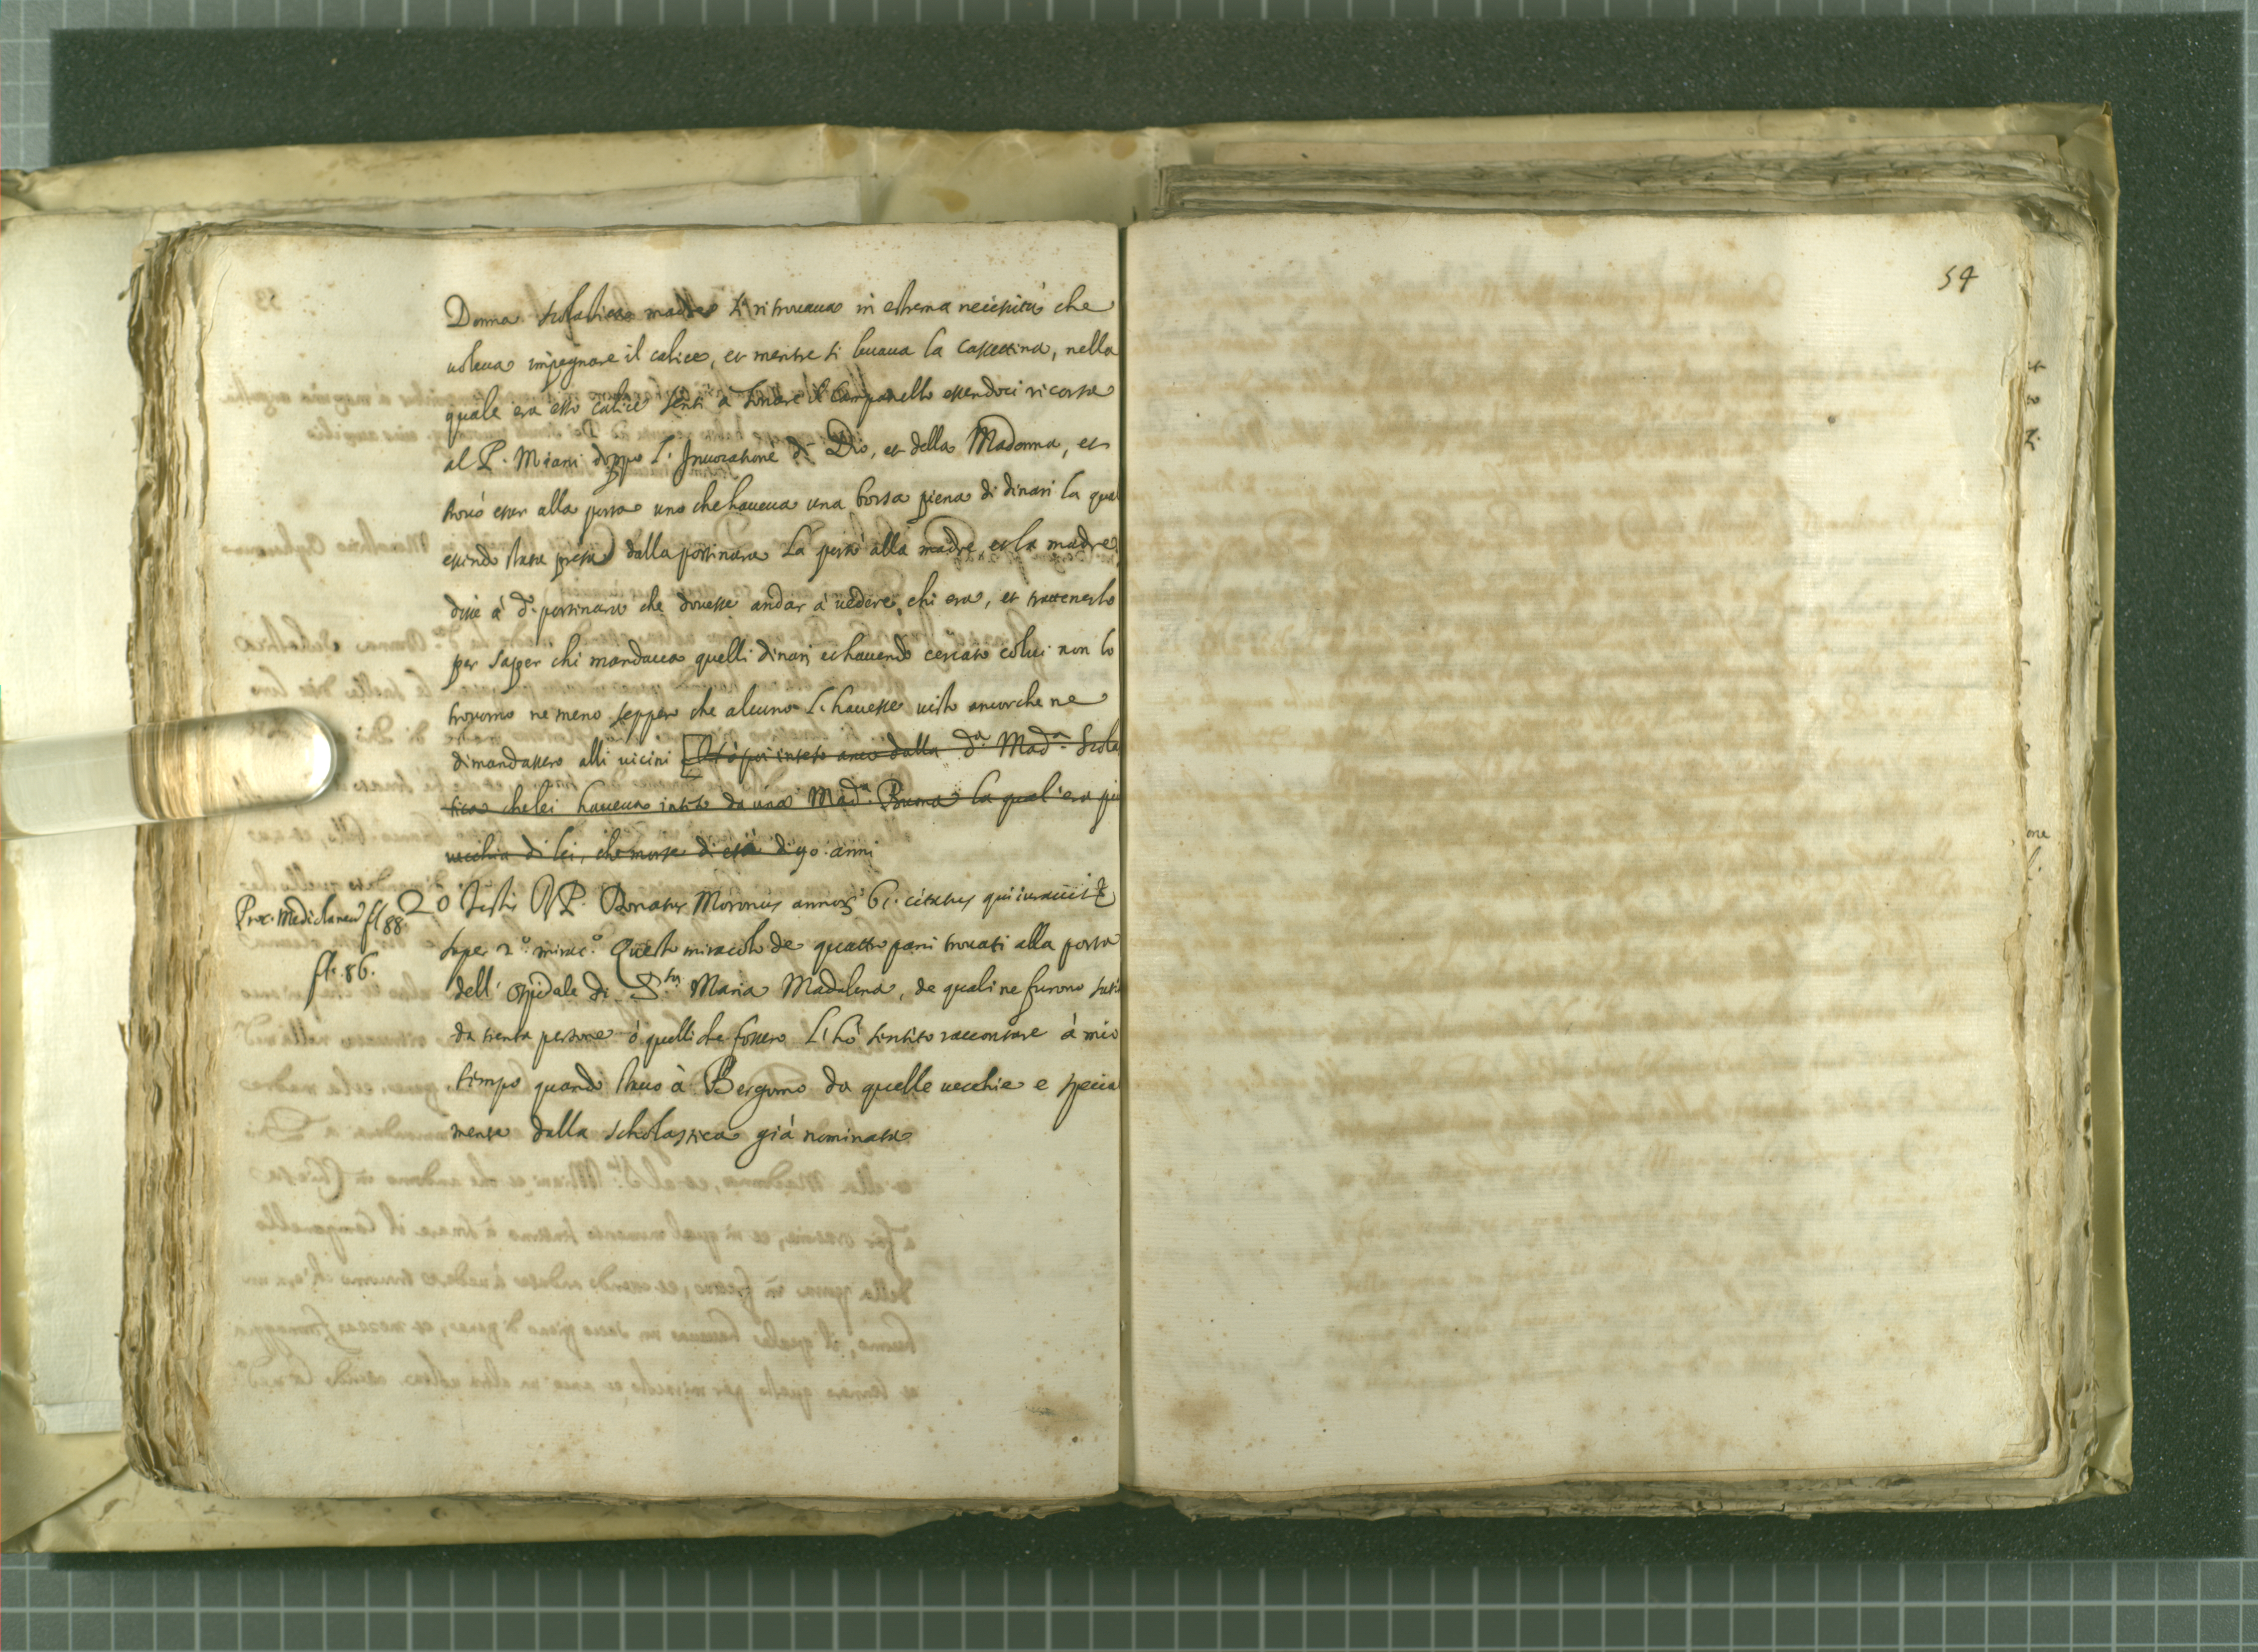 Donna scolastica madre si ritrouaua in estrema necessità che
uoleua impegnare il calice, et mentre si leuaua la cassettina, nella
quale era esso calice sentì a sonare il Campanello essendoci ricorsa
al P. Miani doppo l'Inuocatione di Dio, et della Madonna, et
trouò esser alla porta uno che haueua una borsa piena di dinari la qual
essendo stata presa dalla portinara la portò alla madre, et la madre
disse à d.ᵃ portinara che douesse andar à uedere chi era, et trattenerlo
per saper chi mandaua quelli dinari et hauendo cercato colui non lo
trouorno ne meno seppero che alcuno l'hauesse uisto ancorche ne
dimandassero alli uicini [Et hò poi inteso anco dalla d.ᵃ Mad.ᵃ Scola
stica che lei haueua inteso da una Mad.ᵃ Buona la qual'era più
uecchia di lei, che morse di età di 90 anni
Proc. Mediolanen fl 88.
fl. 86.
20 Testis P. Donatus Moronus annorũ 61. citatus qui iurauit &
super 2.º mirac.º Questo miracolo de quattro pani trouati alla porta
dell'ospidale di S.ᵗᵃ Maria Madalena, de quali ne furono satij
da trenta persone ò quelli che fossero l'hò sentito raccontare à mio
tempo quando stauo à Bergomo da quelle uecchie e specia
mente dalla Scholastica già nominata
54